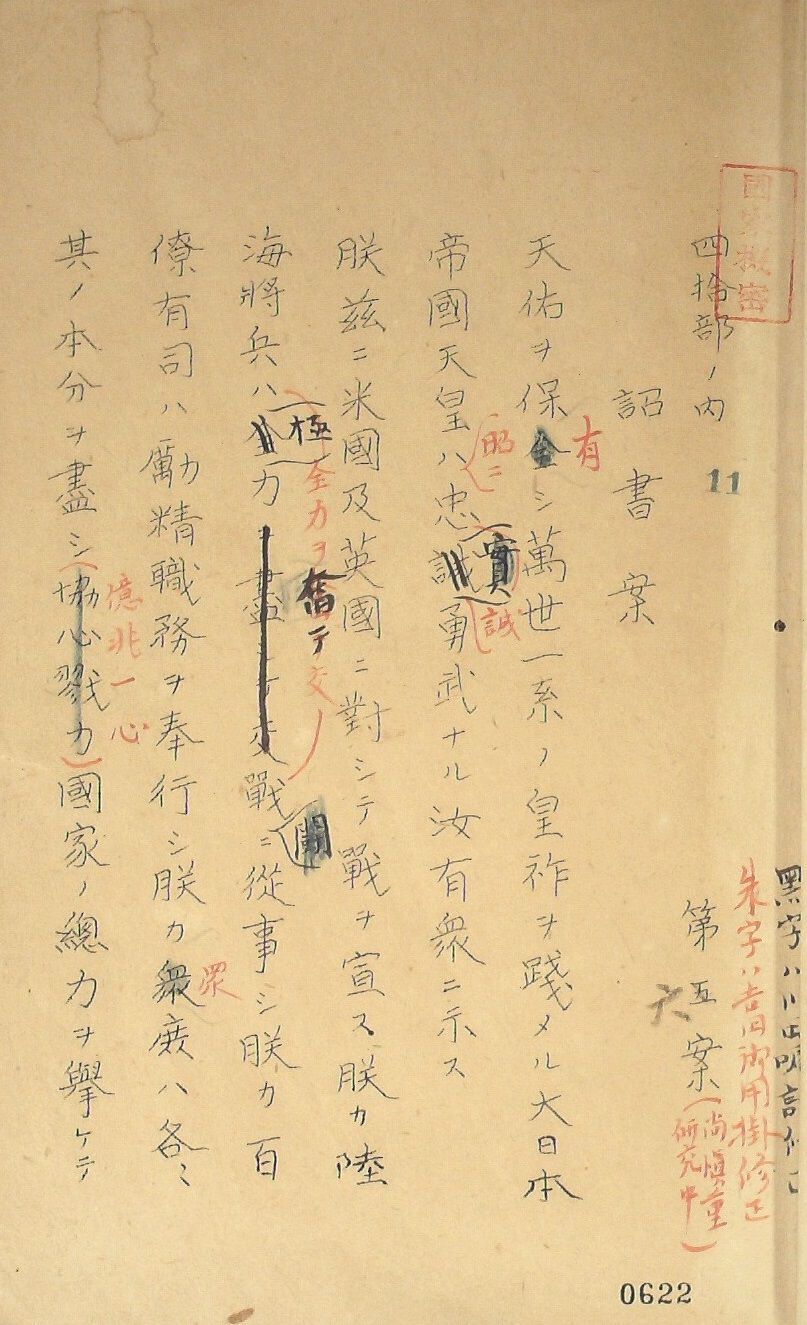 國家機密
四拾部ノ内
11
詔書案
黑字ハ川田嘱託修正
朱字ハ吉田御用掛修正
第五案(尚愼重研究中)
六
天佑ヲ保全シ萬世一系ノ皇祚ヲ踐メル大日本
有
帝國天皇ハ忠誠勇武ナル汝有衆ニ示ス
昭ニ
實
誠
朕茲ニ米國及英國ニ對シテ戰ヲ宣ス朕カ陸
海將兵ハ全力ヲ盡シテ交戰ニ從事シ朕カ百
極
全力ヲ奮テ交
鬭
僚有司ハ勵精職務ヲ奉行シ朕カ衆庶ハ各〻
眾
其ノ本分ヲ盡シ(協心戮力)國家ノ總力ヲ擧ケテ
億兆一心
0622